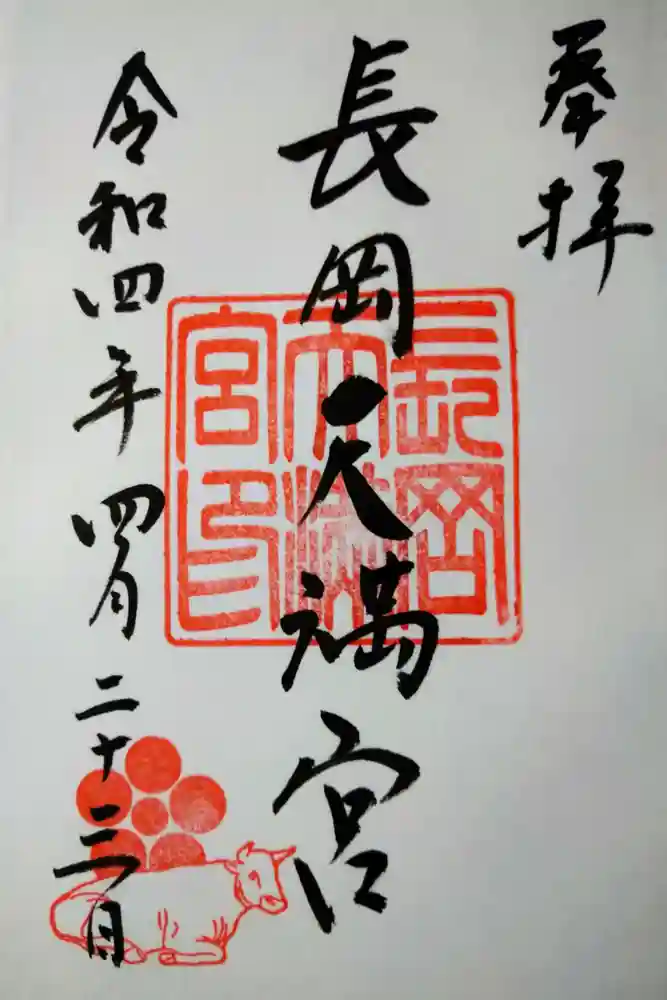 奉拝
長岡天満宮
令和四年四月二十三日
長岡天満宮印